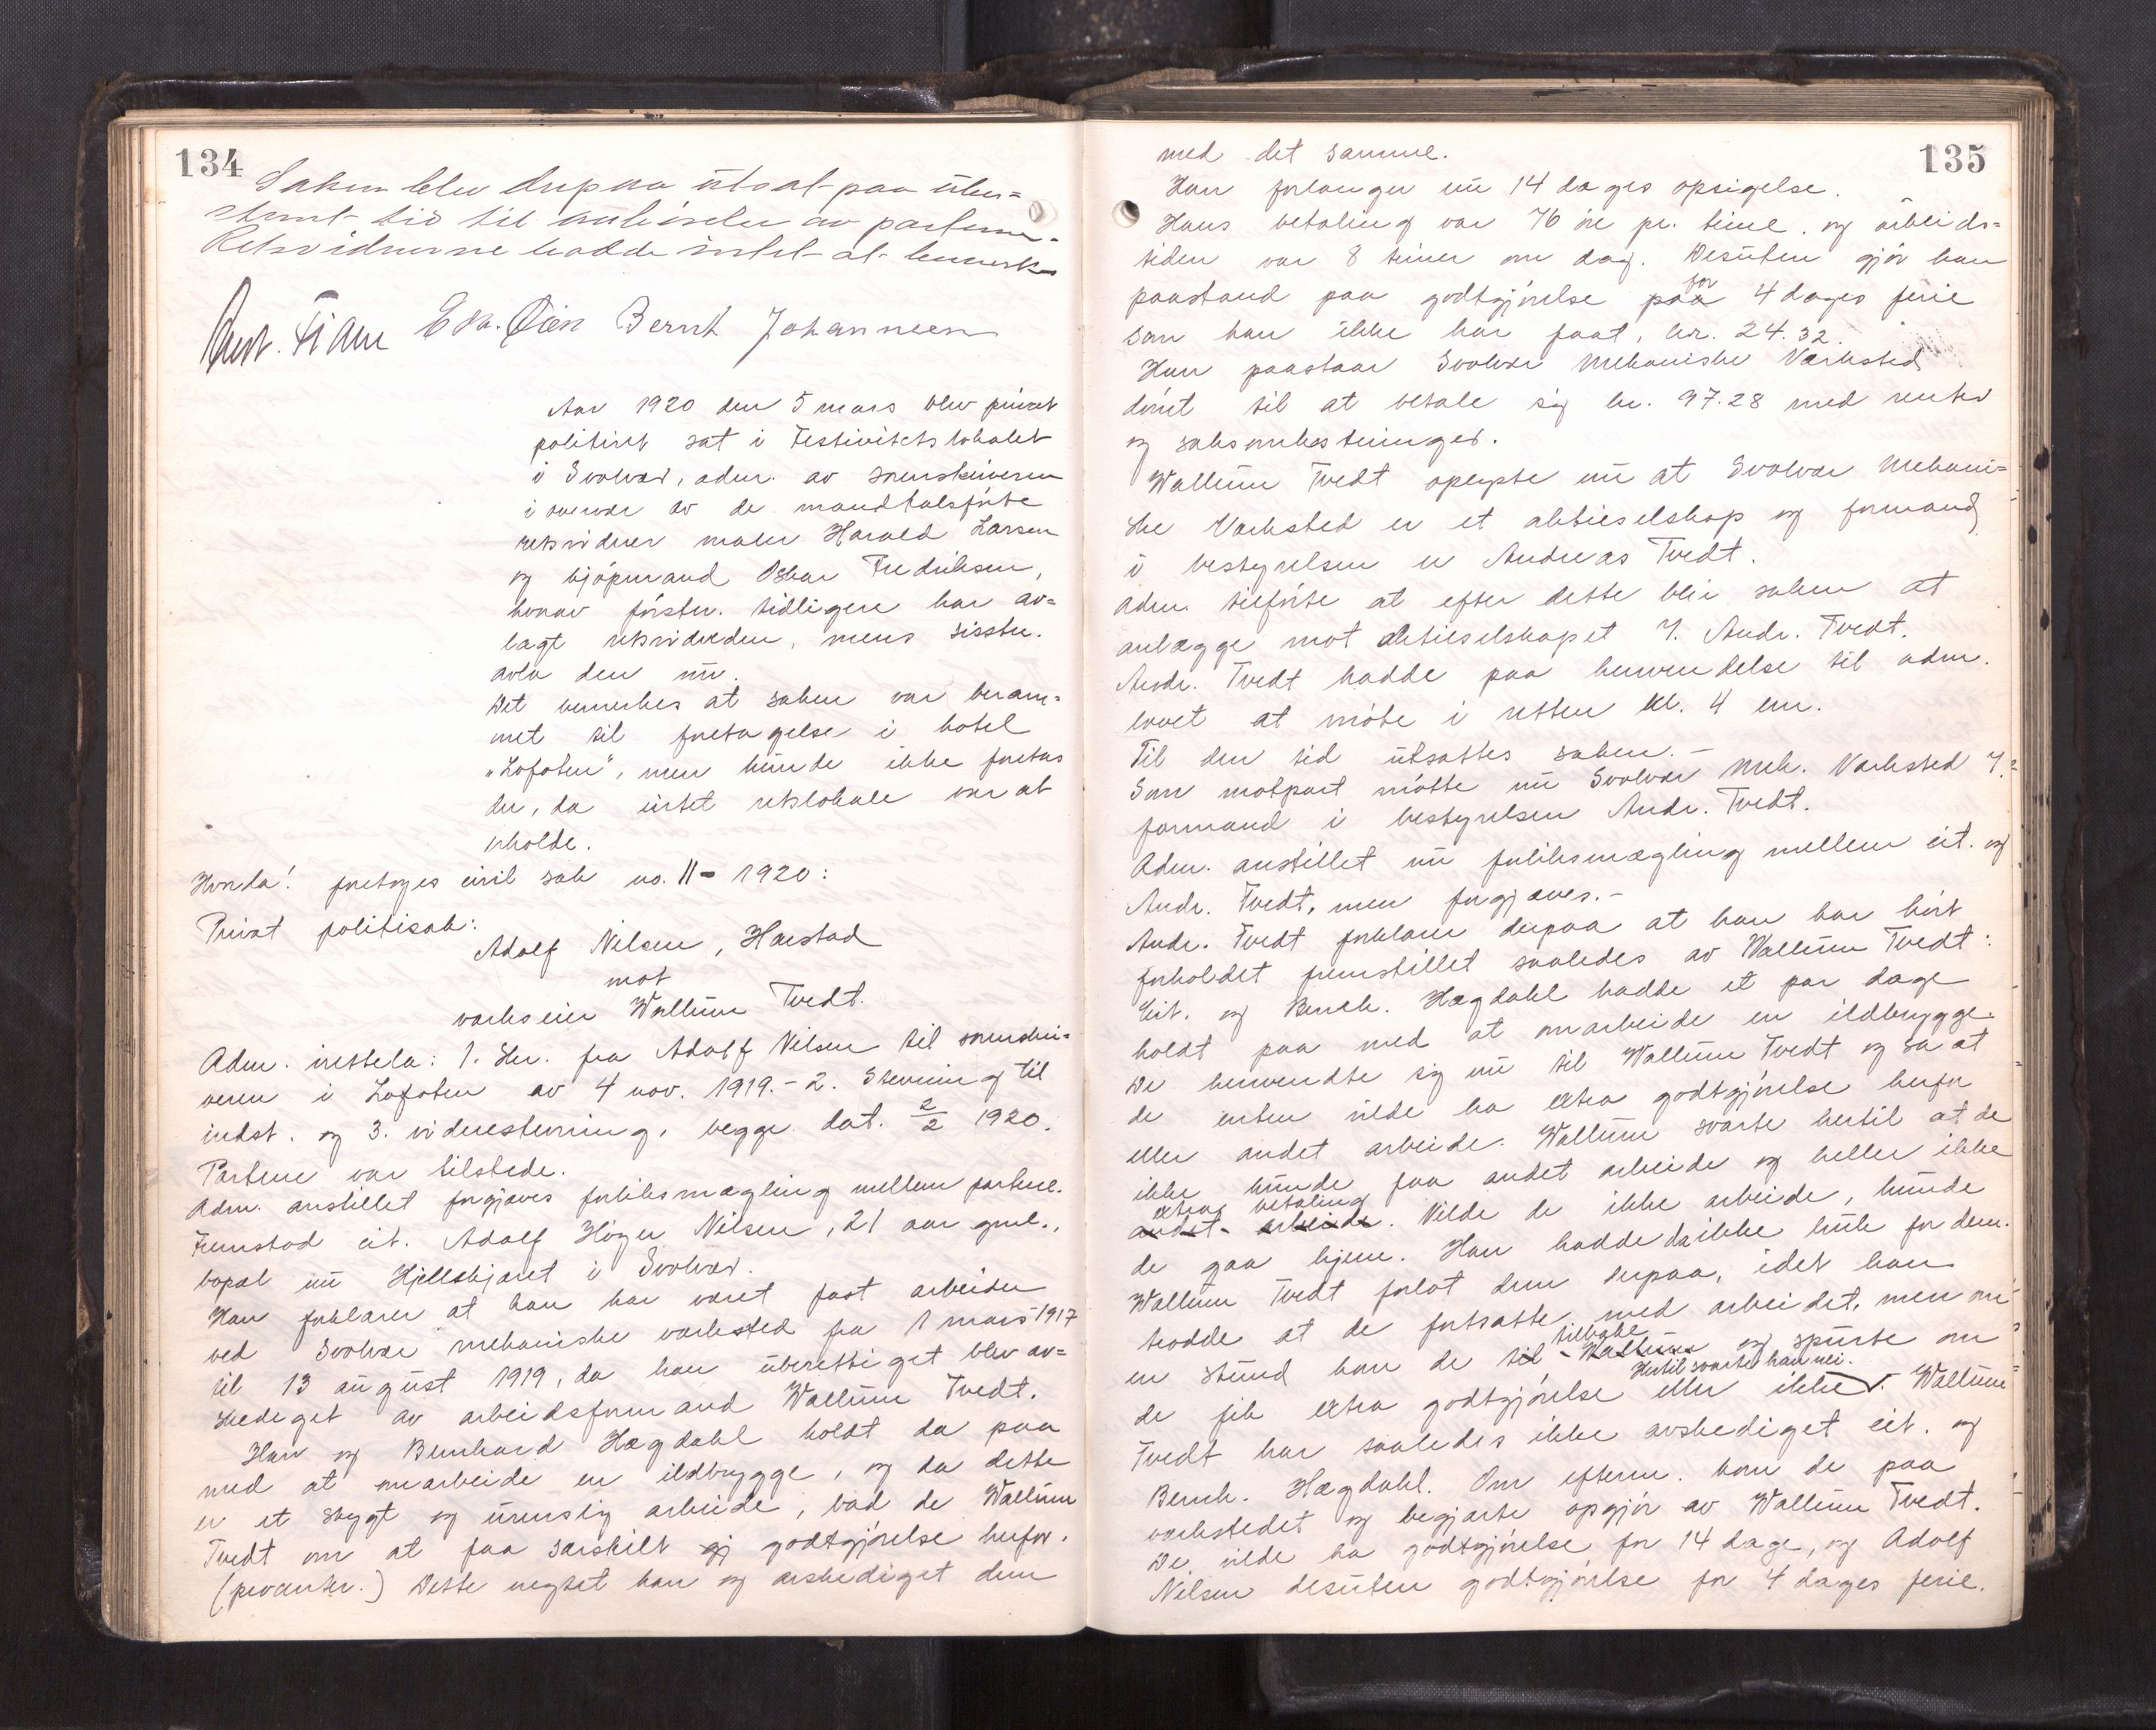 134
Saken blev derpaa utsat paa ube=
stemt tid til anhörelse av partene.
Retsvidnerne hadde intet at bemerke
E. Øien Bernt Johannesen
Aar 1920 den 5 mars blev privat
politiret sat i Festivitetslokalet
i Svolvær, adm. av sorenskriveren
i overvær av de mandtalsförte
retsvidner maler Harald Larsen
og kjöpmand Oskar Fredriksen,
hvorav förstn. tidligere har av=
lagt retsvidneden, mens sisstn.
avla den nu.
Det bemerkes at saken var beram=
met til foretagelse i hotel
"Lofoten", men kunde ikke foretas
der, da intet retslokale var at
erholde.
Hvorda! foretoges civil sak no. 11 - 1920:
Privat politisak:
Adolf Nilsen, Harstad
mot
verkseier Wallum Tvedt.
Adm. irettela: 1. Skr. fra Adolf Nilsen til sorenskri=
veren i Lofoten av 4 nov. 1919. - 2. Stevning til
indst. og 3. vidnestevning, begge dat. 2/2 1920.
Partene var tilstede.
Adm. anstillet forgjæves forliksmægling mellem partene.
Fremstod cit. Adolf Höger Nilsen, 21 aar gml.,
bopæl nu Hjellskjæret i Svolvær.
Han forklarer at han har været fast arbeider
ved Svolvær mekaniske verksted fra 1 mars 1917
til 13 august 1919, da han uberettiget blev av=
skediget av arbeidsformand Wallum Tvedt.
Han og Bernhard Hægdahl holdt da paa
med at omarbeide en ildbrygge, og da dette
er et stygt og urenslig arbeide, bad de Wallum
Tvedt om at faa særskilt gj godtgjörelse herfor.
(provanter.) Dette negtet han og avskediget dem
135
med det samme.
Han forlanger nu 14 dages opsigelse.
Hans betaling var 76 öre pr. time og arbeids=
tiden var 8 timer om dag. Desuten gjör han
paastand paa godtgjörelse paa for 4 dages ferie
som han ikke har faat, kr. 24.32.
Han paastaar Svolvær Mekaniske Værksted
dömt til at betale sig kr. 97.28 med renter
og saksomkostninger.
Wallum Tvedt oplyste nu at Svolvær Mekani=
ske Verksted er et aktieselskap og formand
i bestyrelsen er Andreas Tvedt.
Adm. tilförte at efter dette blir saken at
anlægge mot aktieselskapet v. Andr. Tvedt.
Andr. Tvedt hadde paa henvendelse til adm.
lovet at möte i retten kl. 4 em.
Til den tid utsattes saken. -
Som motpart mötte nu Svolvær Mek. Verksted v.
formand i bestyrelsen Andr. Tvedt.
Adm. anstillet nu forliksmægling mellem cit. og
Andr. Tvedt, men forgjæves. -
Andr. Tvedt forklarer derpaa at han har hört
forholdet fremstillet saaledes av Wallum Tvedt:
Cit. og Bernh. Hægdahl hadde et par dage
holdt paa med at omarbeide en ildbrygge.
De henvendte sig nu til Wallum Tvedt og sa at
de enten vilde ha extra godtgjörelse herfor
eller andet arbeide. Wallum svarte hertil at de
ikke kunde faa andet arbeide og heller ikke
extra betaling
andet arbeide. Vilde de ikke arbeide, kunde
de gaa hjem. Han hadde da ikke bruk for dem.
Wallum Tvedt forlot dem derpaa, idet han
trodde at de fortsatte med arbeidet, men om
tilbake
en stund kom de til Wallum og spurte om
Hertil svarte han nei.
de fik extra godtgjörelse eller ikke. Wallum
Tvedt har saaledes ikke avskediget cit. og
Bernh. Hægdahl. Om efterm. kom de paa
verkstedet og begjærte opgjör av Wallum Tvedt.
De vilde ha godtgjörelse for 14 dage, og Adolf
Nilsen desuten godtgjörelse for 4 dages ferie.